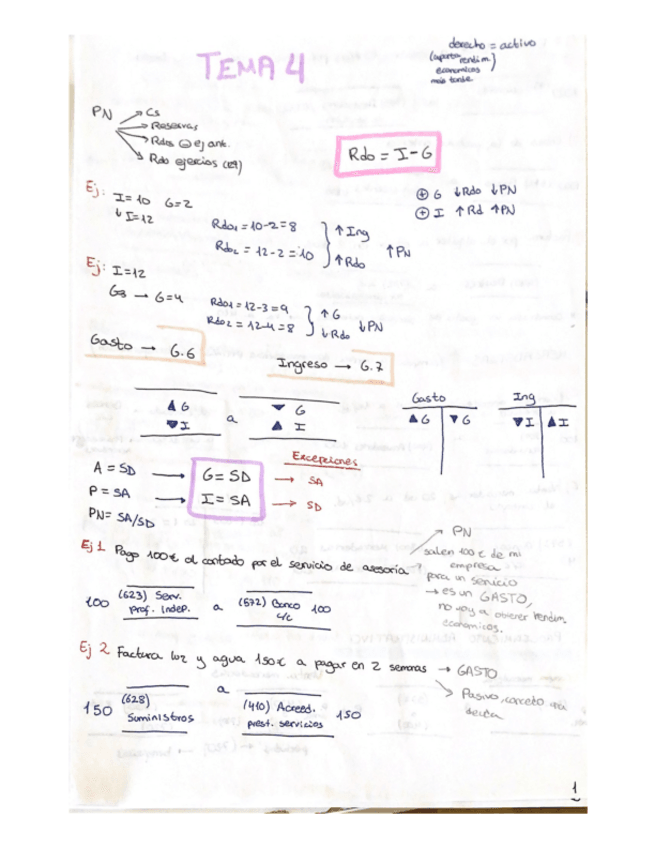 TEMA 4
derecho = activo
(aporta rendim.)
economicos
más tarde
PN → Cs
→ Reservas
→ Rdos ⊖ ej ant.
→ Rdo ejercicio (129)
Rdo = I - G
Ej: I= 10 G=2
↓ I=12
⊕ G ↓Rdo ↓PN
⊕ I ↑Rd ↑PN
Rdo1 = 10-2=8
Rdo2 = 12-2 = 10
↑Ing
↑Rdo
↑PN
Ej: I=12
G3 → G=4
Rdo1 = 12-3 = 9
Rdo2 = 12-4 = 8
↑G
↓Rdo
↓PN
Gasto → G.6
Ingreso → G.7
▲ G
▼ I
a
▼ G
▲ I
Gasto
▲G ▼G
Ing
▼I ▲I
Excepciones
A = SD → G= SD → SA
P = SA → I= SA → SD
PN= SA/SD
Ej 1 Pago 100€ al contado por el servicio de asesoría
→ PN
salen 100 € de mi
empresa
para un servicio
→ es un GASTO,
no voy a obtener rendim.
economicos.
100 (623) Serv. Prof. Indep. a (572) Banco c/c 100
Ej 2 Factura luz y agua 150€ a pagar en 2 semanas → GASTO
→ Pasivo, cancelo una
deuda
150 (628) Suministros a (410) Acreed. prest. servicios 150
1